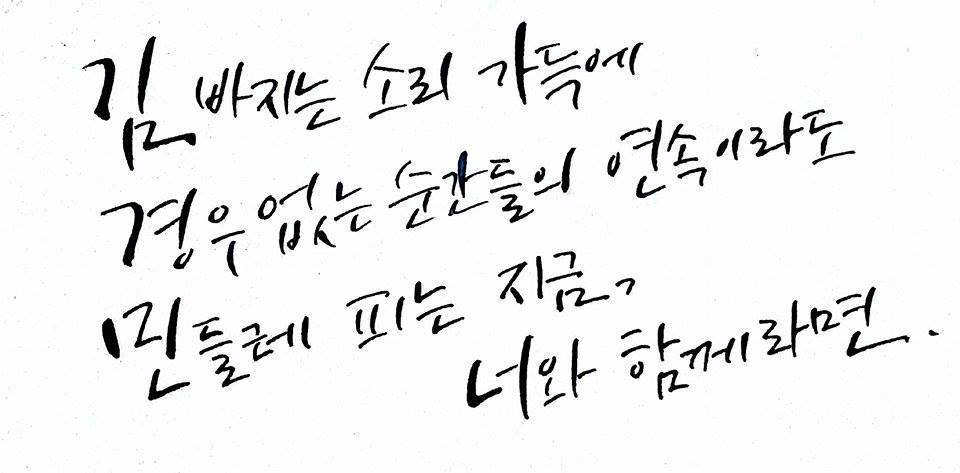 김 빠지는 소리 가득에
경우 없는 순간들의 연속이라도
민들레 피는 지금,
너와 함께라면.